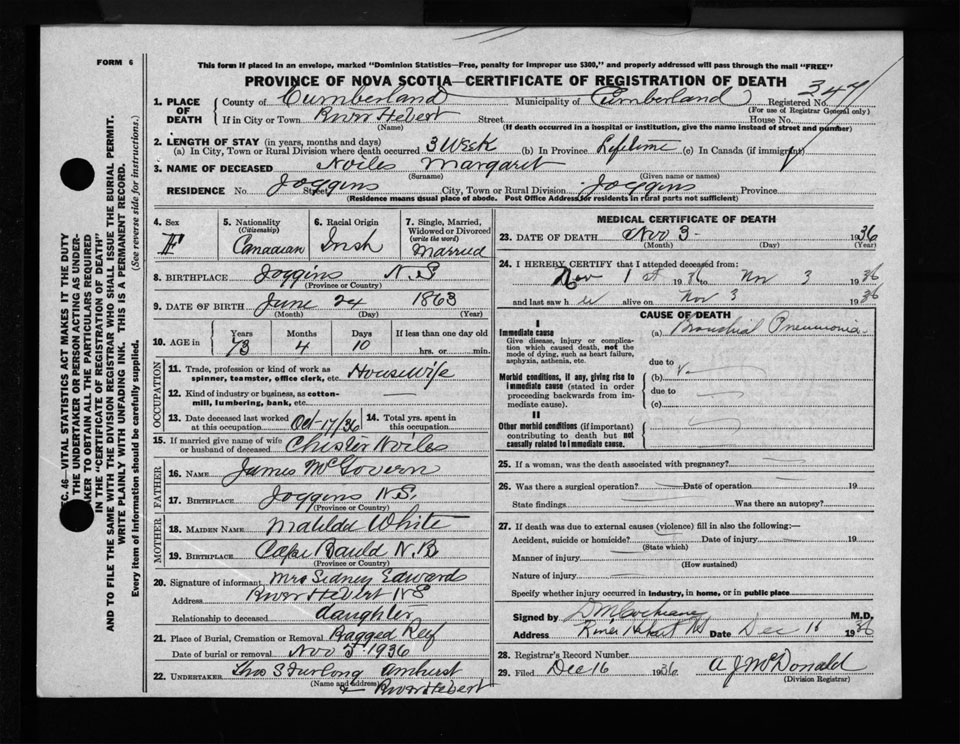 FORM 6
This form if placed in an envelope, marked "Dominion Statistics—Free, penalty for improper use $300," and properly addressed will pass through the mail "FREE"
PROVINCE OF NOVA SCOTIA—CERTIFICATE OF REGISTRATION OF DEATH
347
1. PLACE OF DEATH County of Cumberland Municipality of Cumberland Registered No.
(For use of Registrar General only)
If in City or Town River Hebert Street House No.
(Name) (If death occurred in a hospital or institution, give the name instead of street and number)
2. LENGTH OF STAY (in years, months and days)
(a) In City, Town or Rural Division where death occurred 3 Week (b) In Province Lifetime (c) In Canada (if immigrant)
3. NAME OF DECEASED Noiles Margaret
(Surname) (Given name or names)
RESIDENCE No. Street Joggins City, Town or Rural Division Joggins Province
(Residence means usual place of abode. Post Office Address for residents in rural parts not sufficient)
4. Sex F
5. Nationality (Citizenship) Canadian
6. Racial Origin Irish
7. Single, Married, Widowed or Divorced (write the word) Married
8. BIRTHPLACE Joggins N.S
(Province or Country)
9. DATE OF BIRTH June 24 1863
(Month) (Day) (Year)
10. AGE in Years 73 Months 4 Days 10 If less than one day old hrs. or min.
OCCUPATION
11. Trade, profession or kind of work as spinner, teamster, office clerk, etc. Housewife
12. Kind of industry or business, as cotton-mill, lumbering, bank, etc. —
13. Date deceased last worked at this occupation Oct-17/36
14. Total yrs. spent in this occupation
15. If married give name of wife or husband of deceased Chester Noiles
FATHER
16. NAME James McGovern
17. BIRTHPLACE Joggins N.S.
(Province or Country)
MOTHER
18. MAIDEN NAME Matilda White
19. BIRTHPLACE Cape Bauld N.B
(Province or Country)
20. Signature of informant Mrs Sidney Edwards
Address River Hebert NS
Relationship to deceased daughter
21. Place of Burial, Cremation or Removal Ragged Reef
Date of burial or removal Nov 5 1936
22. UNDERTAKER Geo S Furlong Amherst
(Name and address) & River Hebert
MEDICAL CERTIFICATE OF DEATH
23. DATE OF DEATH Nov 3- 1936
(Month) (Day) (Year)
24. I HEREBY CERTIFY that I attended deceased from:
Nov 1st 1936 to Nov 3 1936
and last saw her alive on Nov 3 1936
CAUSE OF DEATH
I
Immediate cause (a) Bronchial Pneumonia
Give disease, injury or complication which caused death, not the mode of dying, such as heart failure, asphyxia, asthenia, etc.
due to
Morbid conditions, if any, giving rise to immediate cause (stated in order proceeding backwards from immediate cause).
(b)
due to
(c)
II
Other morbid conditions (if important) contributing to death but not causally related to immediate cause.
25. If a woman, was the death associated with pregnancy? —
26. Was there a surgical operation? — Date of operation — 19
State findings — Was there an autopsy? —
27. If death was due to external causes (violence) fill in also the following:—
Accident, suicide or homicide? — Date of injury — 19
(State which)
Manner of injury —
(How sustained)
Nature of injury —
Specify whether injury occurred in industry, in home, or in public place
Signed by D M Cochrane M.D.
Address River Hebert NS Date Dec 16 1936
28. Registrar's Record Number
29. Filed Dec 16 1936 A J McDonald
(Division Registrar)
SEC. 46—VITAL STATISTICS ACT MAKES IT THE DUTY
OF THE UNDERTAKER OR PERSON ACTING AS UNDERTAKER TO OBTAIN ALL THE PARTICULARS REQUIRED
IN THE "CERTIFICATE OF REGISTRATION OF DEATH"
AND TO FILE THE SAME WITH THE DIVISION REGISTRAR WHO SHALL ISSUE THE BURIAL PERMIT.
WRITE PLAINLY WITH UNFADING INK. THIS IS A PERMANENT RECORD.
Every item of information should be carefully supplied. (See reverse side for instructions.)